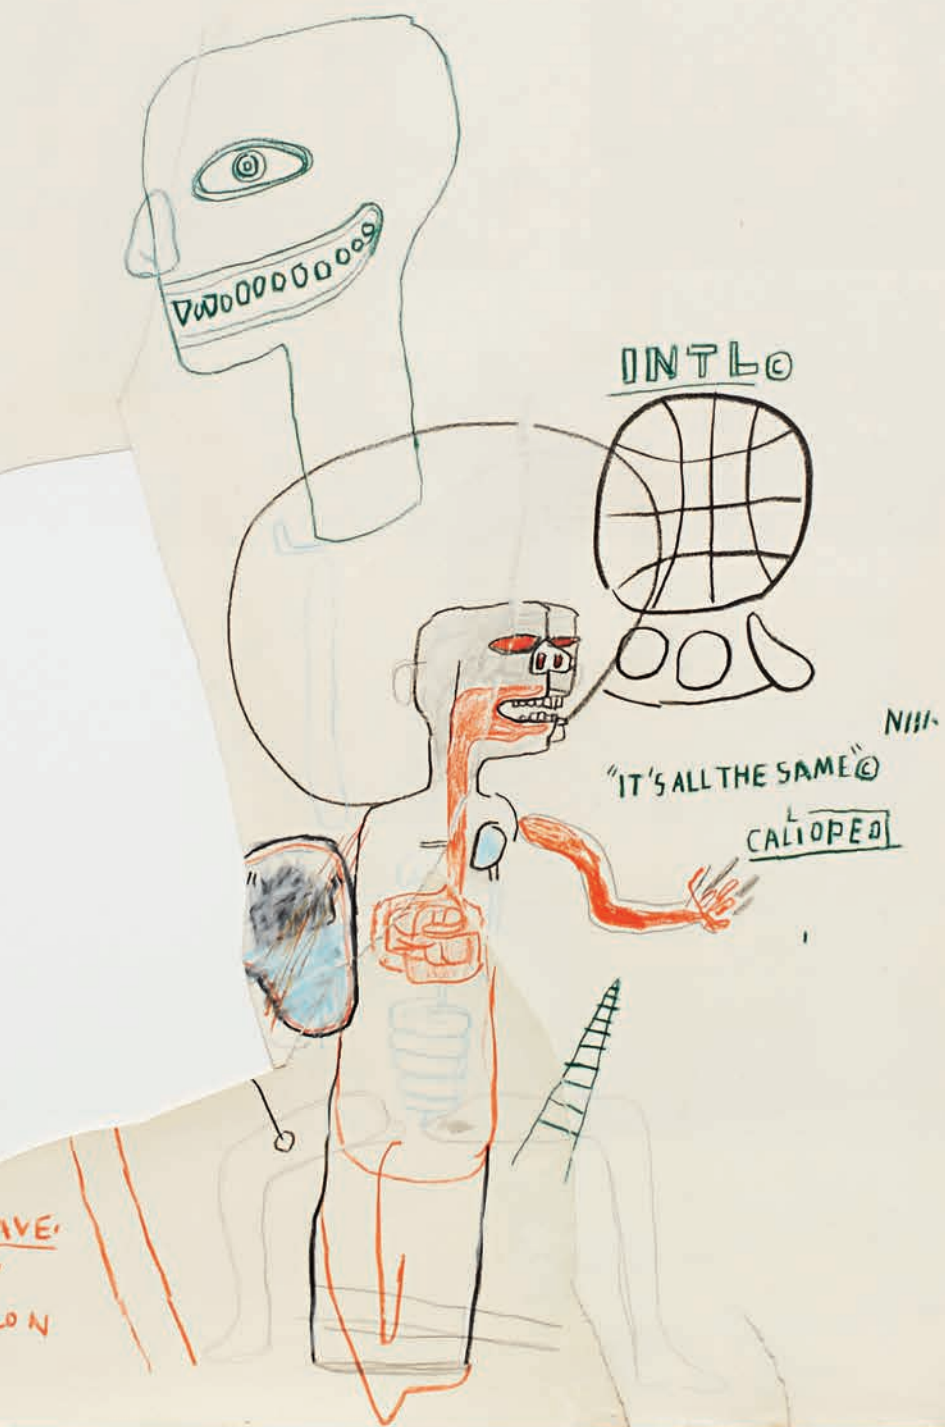 INTL©
"IT'S ALL THE SAME"©
CALIOPED
AVE.
ON